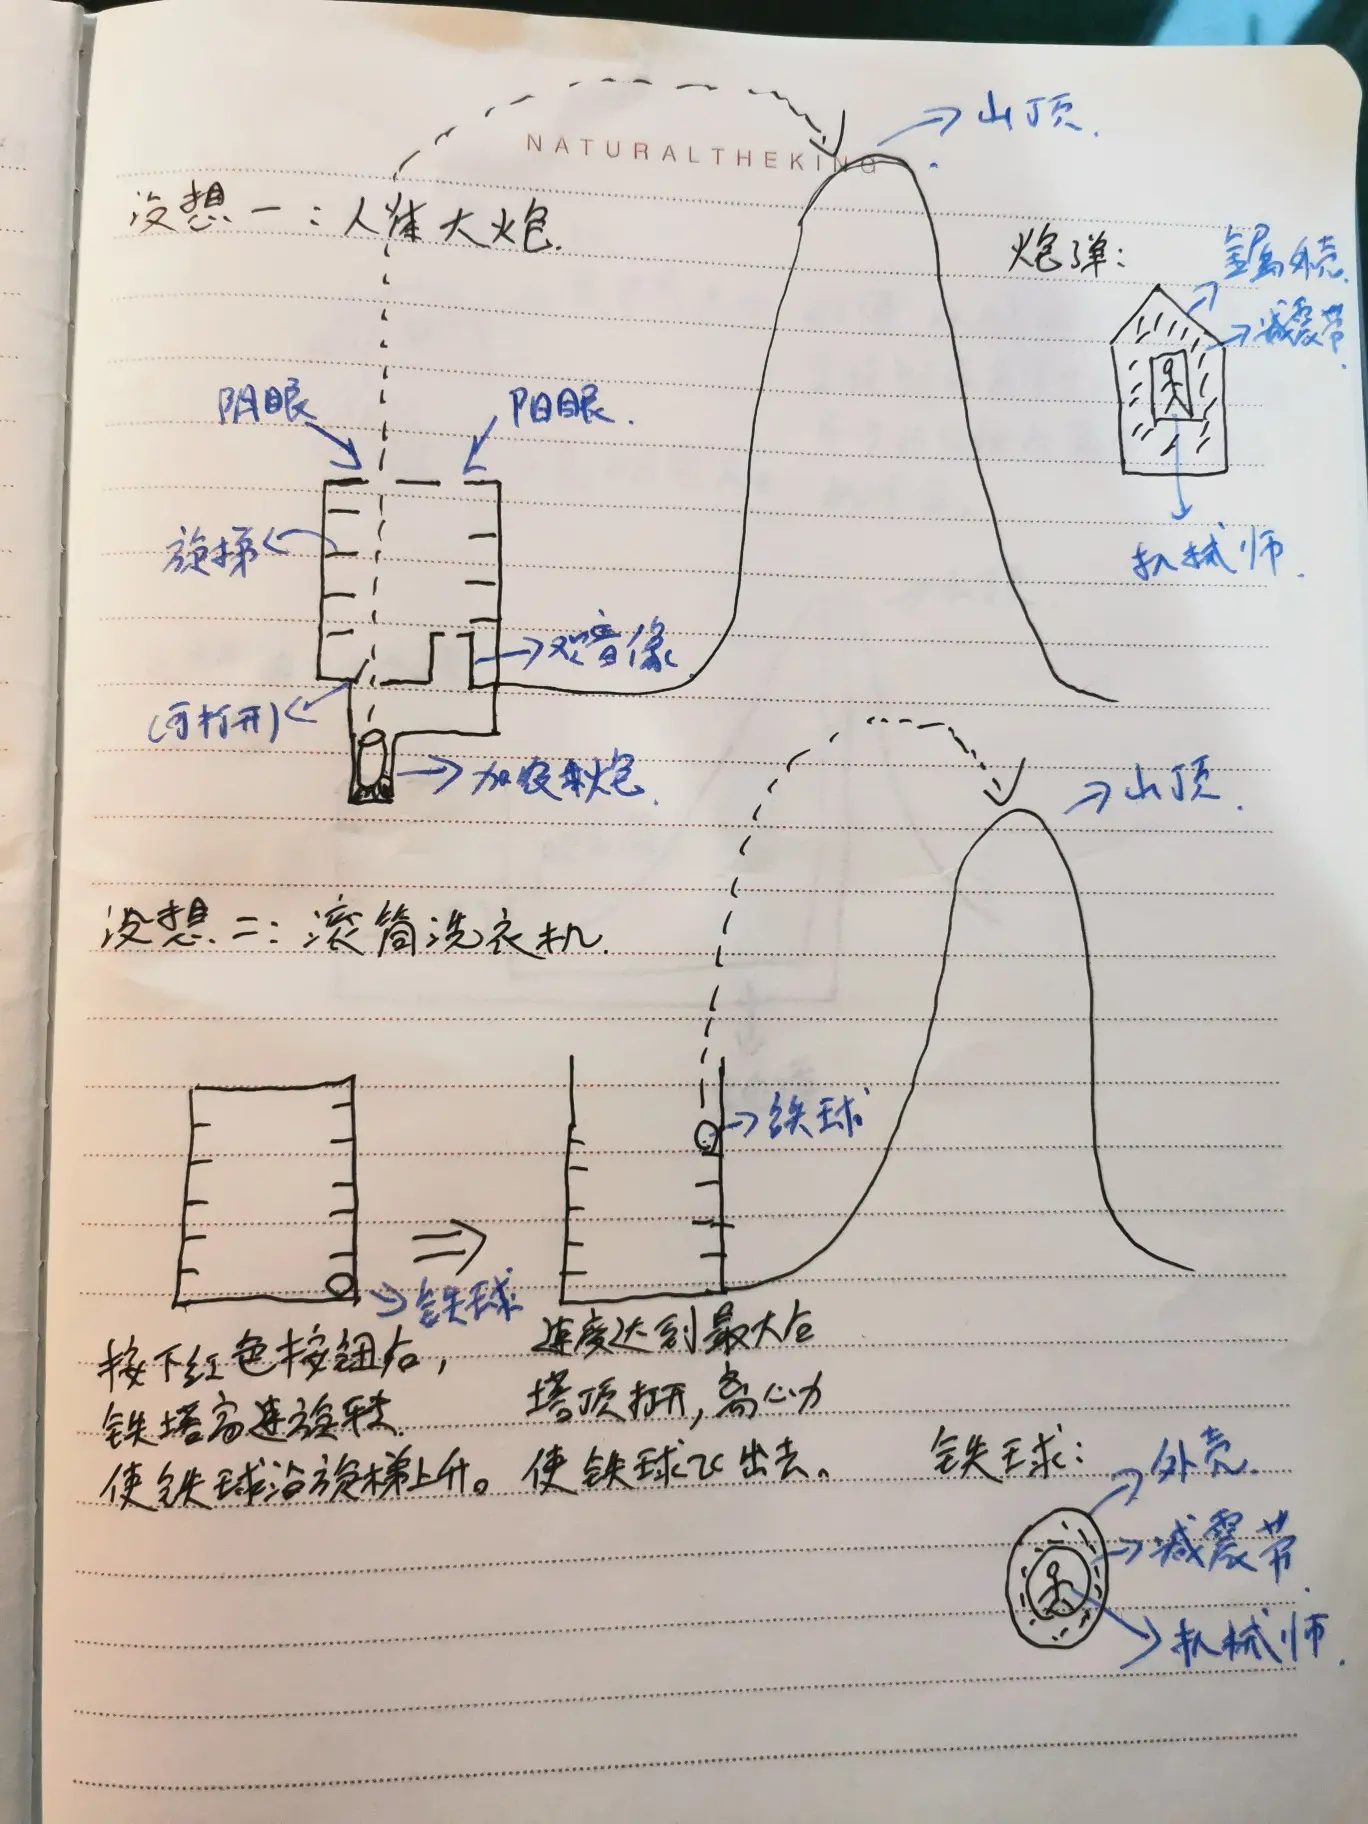 山顶.
NATURALTHEKING
设想一：人体大炮.
炮弹：
金属外壳.
减震带
机械师.
阴眼
阳眼.
旋梯
观音像
(可打开)
加农炮.
山顶.
设想二：滚筒洗衣机.
铁球
铁球
按下红色按钮后，
铁塔高速旋转
使铁球沿旋梯上升。
速度达到最大后
塔顶打开，离心力
使铁球飞出去。
铁球：
外壳.
减震带.
机械师.